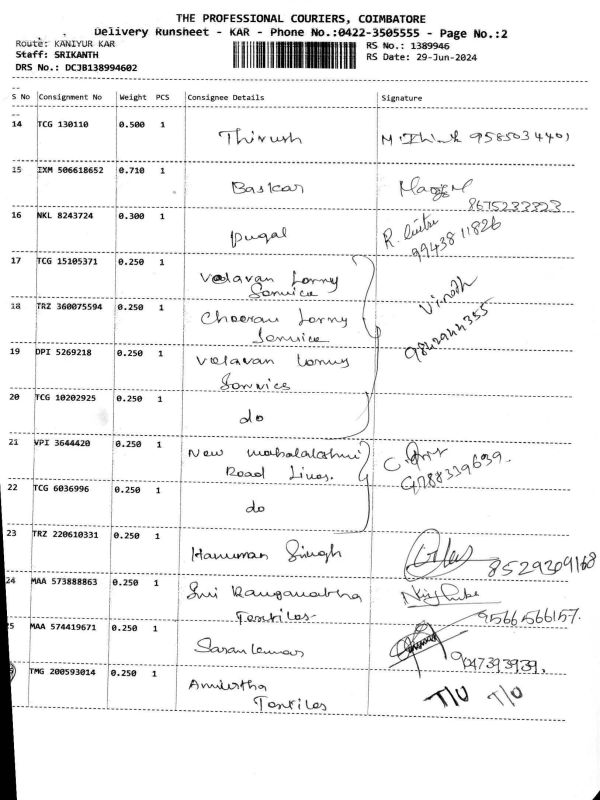 THE PROFESSIONAL COURIERS, COIMBATORE
Delivery Runsheet - KAR - Phone No.:0422-3505555 - Page No.:2
Route: KANIYUR KAR
RS No.: 1389946
Staff: SRIKANTH
RS Date: 29-Jun-2024
DRS No.: DCJB138994602
S No Consignment No Weight PCS Consignee Details Signature
14 TCG 130110 0.500 1 Thirush 9585034401
15 IXM 506618652 0.710 1 Baskar
8675233323
16 NKL 8243724 0.300 1 pugal R.
9943811826
17 TCG 15105371 0.250 1 Velavan Lorry
Service
Vinoth
18 TRZ 360075594 0.250 1 Cheeran Lorry
Service
9842944355
19 DPI 5269218 0.250 1 Velavan Lorry
Service
20 TCG 10202925 0.250 1
do
21 VPI 3644420 0.250 1 New mahalakshmi
Road Lines.
22 TCG 6036996 0.250 1
do
23 TRZ 220610331 0.250 1 Hanuman Singh
8529309168
24 MAA 573888863 0.250 1 Sri Ranganatha
Textiles
9566566157.
25 MAA 574419671 0.250 1 Saran kumar
9047393939.
TMG 200593014 0.250 1 Amirtha
Textiles
T/U T/U